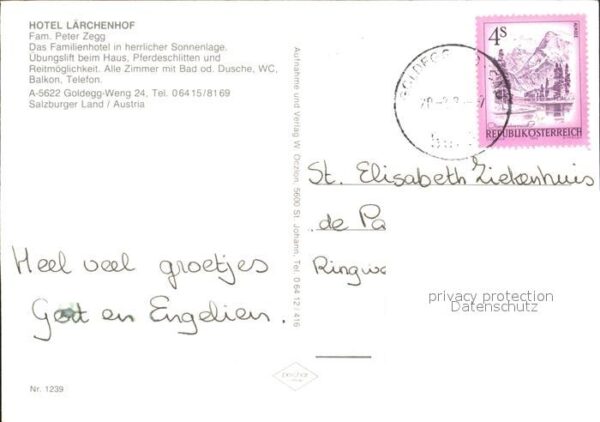 HOTEL LÄRCHENHOF
Fam. Peter Zegg
Das Familienhotel in herrlicher Sonnenlage.
Übungslift beim Haus, Pferdeschlitten und
Reitmöglichkeit. Alle Zimmer mit Bad od. Dusche, WC,
Balkon, Telefon.
A-5622 Goldegg-Weng 24, Tel. 06415/8169
Salzburger Land / Austria
Heel veel groetjes
Gert en Engelien.
Nr. 1239
Aufnahme und Verlag W. Oczlon, 5600 St. Johann, Tel. 06412/416
GOLDEGG
4s
REPUBLIK ÖSTERREICH
St. Elisabeth Ziekenhuis
de Pa
Ringw
privacy protection
Datenschutz